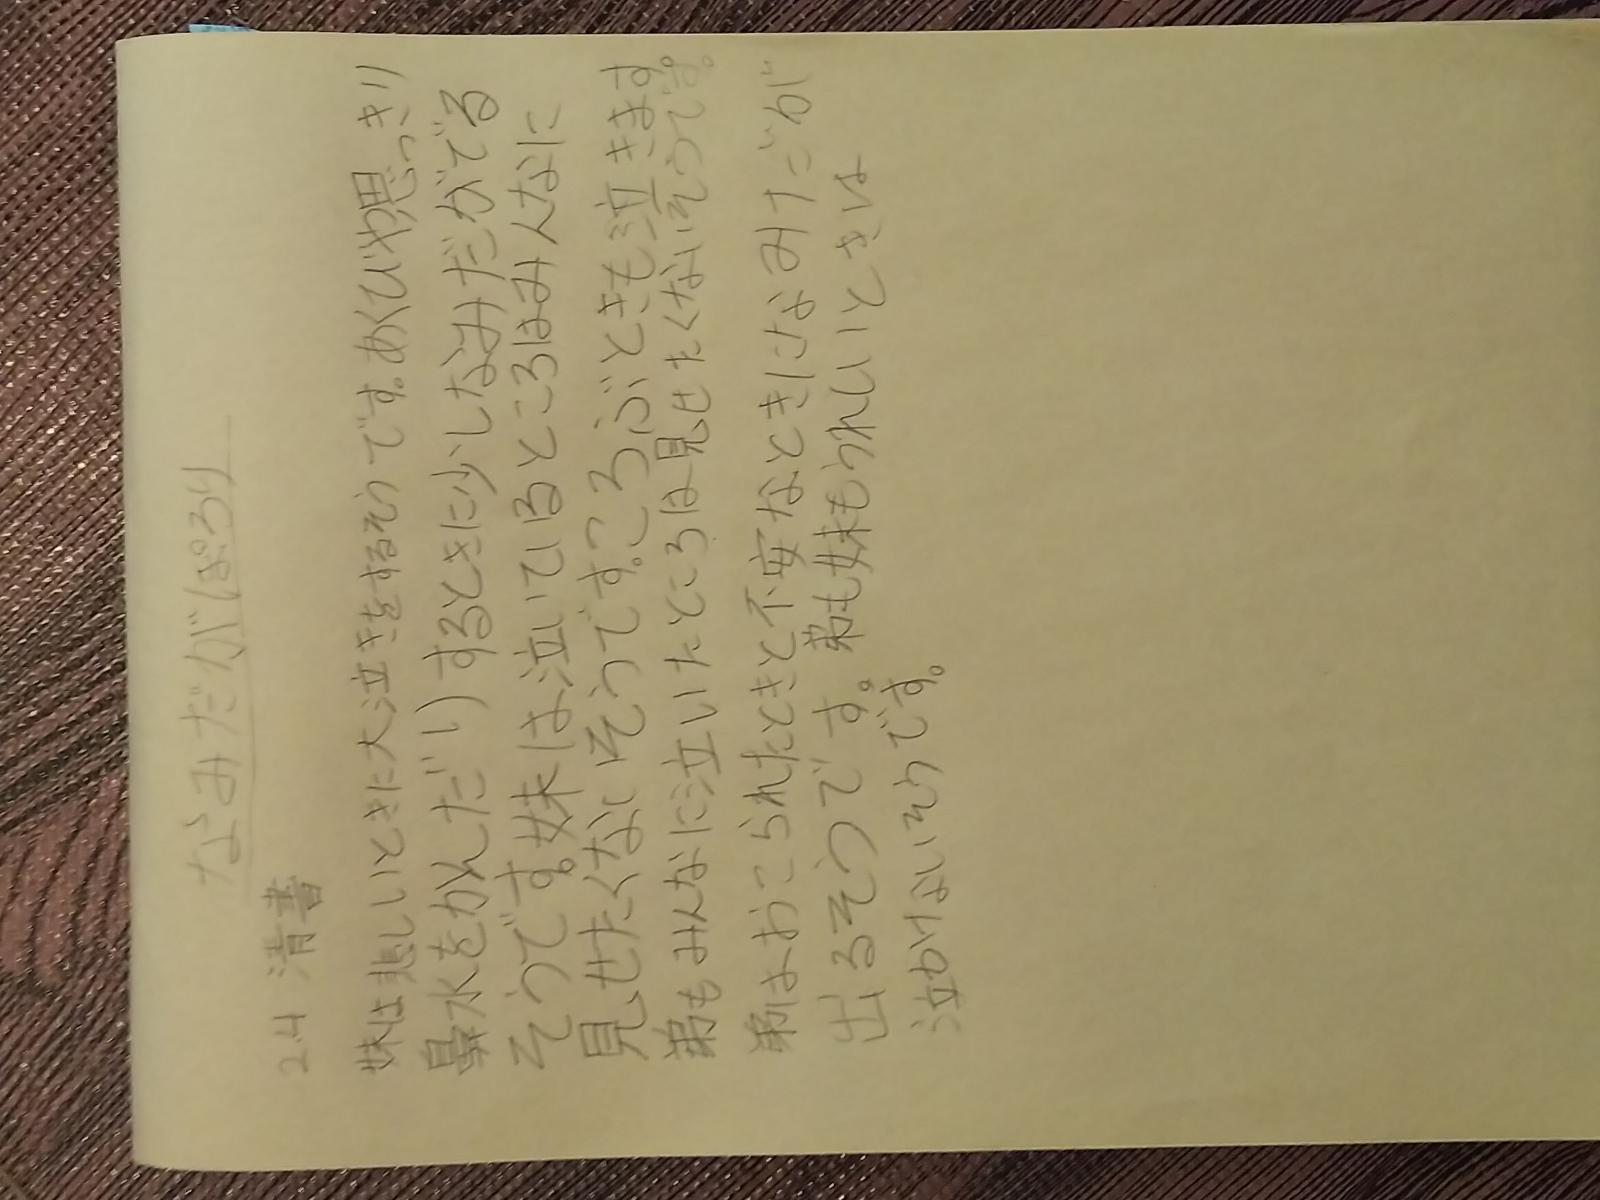 なみだがぽろり
2.4 清書
妹は悲しいときに大泣きをするそうです。あくびや思っきり
鼻水をかんだりするときに少しなみだがでる
そうです。妹は泣いているところはみんなに
見せたくないそうです。ころぶときも泣きます。
弟もみんなに泣いたところは見せたくないそうです。
弟はおこられたときと不安なときになみだが
出るそうです。弟も妹もうれしいときは
泣かないそうです。